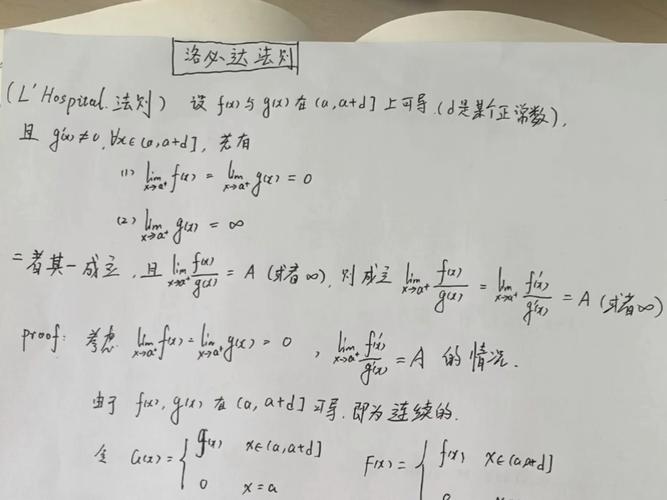 洛必达法则
(L'Hospital 法则) 设 f(x) 与 g(x) 在 (a, a+d] 上可导 (d是某个正常数),
且 g'(x) ≠ 0, ∀x∈(a, a+d], 若有
(1) lim x→a⁺ f(x) = lim x→a⁺ g(x) = 0
(2) lim x→a⁺ g(x) = ∞
二者其一成立, 且 lim x→a⁺ f(x)/g(x) = A (或者∞), 则成立 lim x→a⁺ f(x)/g(x) = lim x→a⁺ f'(x)/g'(x) = A (或者∞)
proof: 考虑 lim x→a⁺ f(x) = lim x→a⁺ g(x) = 0, lim x→a⁺ f'(x)/g'(x) = A 的情况.
由于 f(x), g(x) 在 (a, a+d] 可导, 即为连续的.
令 G(x) = { g(x) x∈(a, a+d] F(x) = { f(x), x∈(a, a+d]
0 x=a